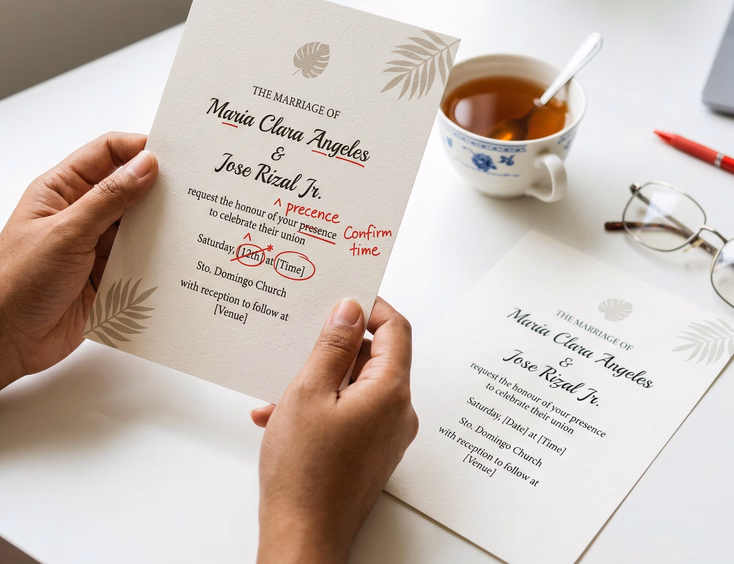 THE MARRIAGE OF
Maria Clara Angeles
&
Jose Rizal Jr.
precence
request the honour of your presence
Confirm
time
to celebrate their union
Saturday, [12th]* at [Time]
Sto. Domingo Church
with reception to follow at
[Venue]
THE MARRIAGE OF
Maria Clara Angeles
&
Jose Rizal Jr.
request the honour of your presence
to celebrate their union
Saturday, [Date] at [Time]
Sto. Domingo Church
with reception to follow at
[Venue]